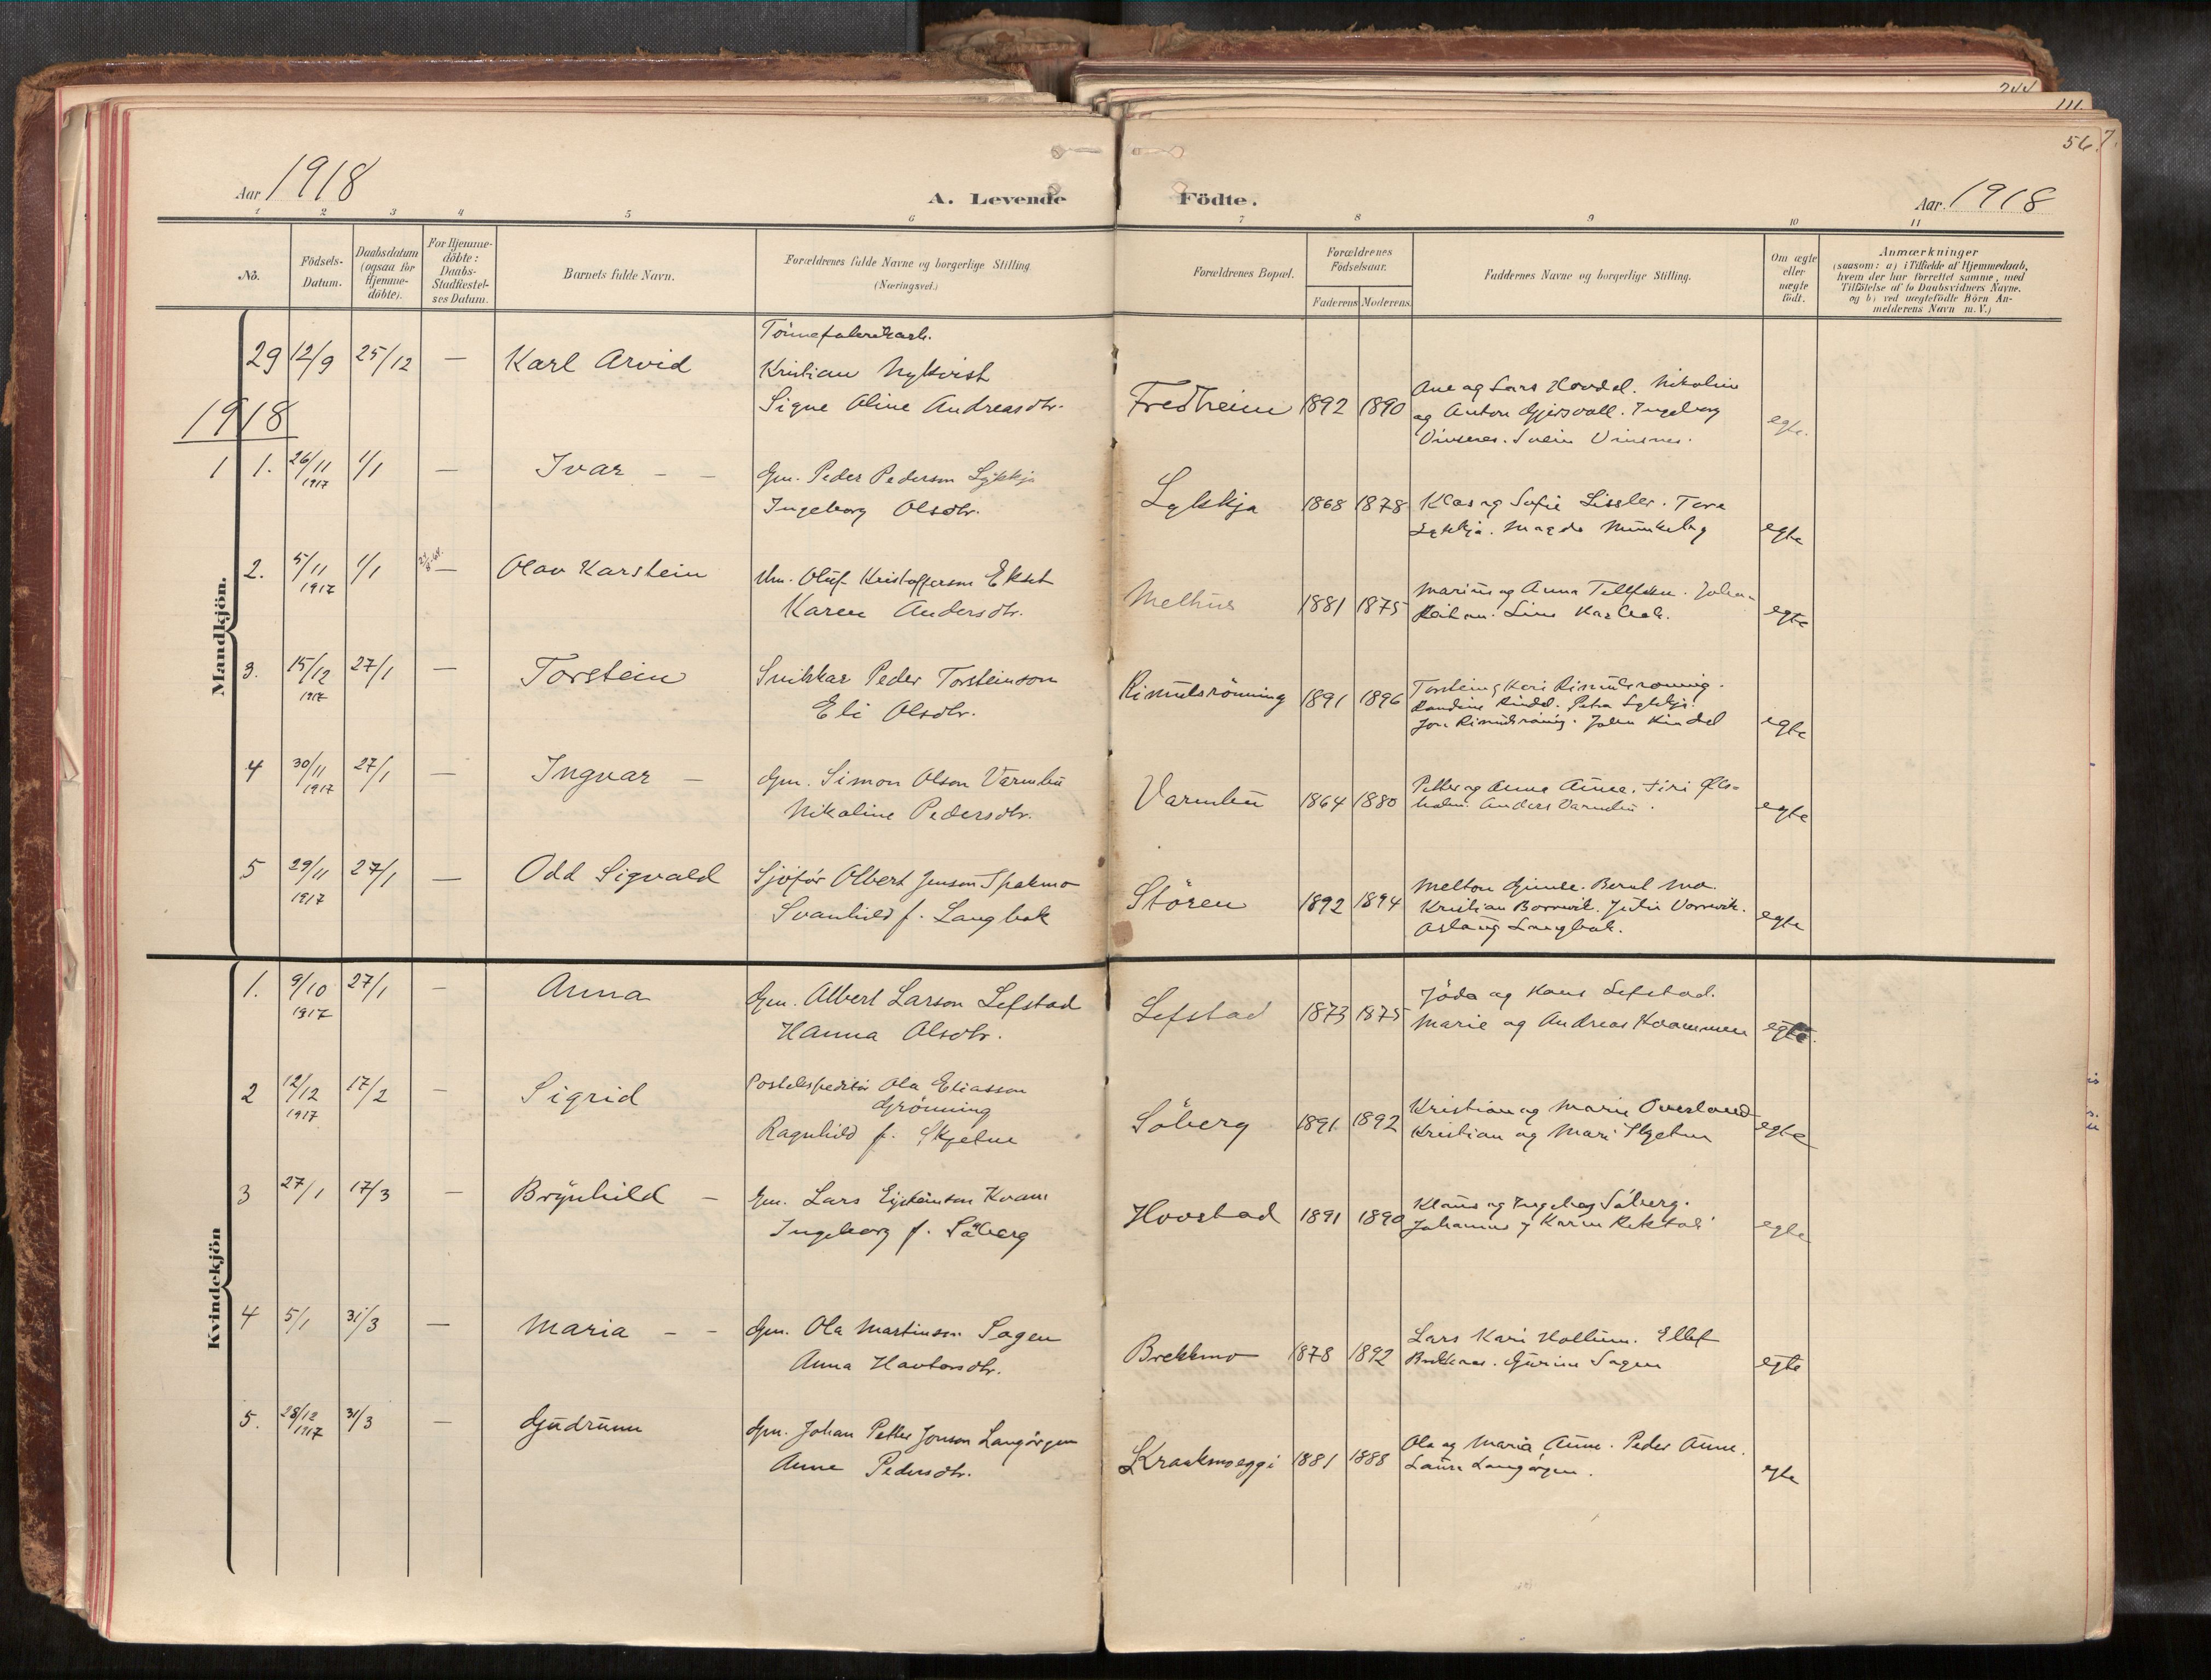 244
111.
567.
Aar 1918
A. Levende Födte.
Aar. 1918
1 2 3 4 5 6 7 8 9 10 11
No.
Födsels-Datum.
Daabsdatum (ogsaa for Hjemme-döbte).
For Hjemme-döbte: Daabs-Stadfæstel-ses Datum.
Barnets fulde Navn.
Forældrenes fulde Navne og borgerlige Stilling
(Næringsvei.)
Forældrenes Bopæl.
Forældrenes Födselsaar.
Faderens Moderens
Faddernes Navne og borgerlige Stilling.
Om ægte eller uægte födt.
Anmærkninger
(saasom: a) i Tilfælde af Hjemmedaab,
hvem der har forrettet samme, med
Tilföielse af to Daabsvidners Navne,
og b) ved uægtefödte Börn An-
melderens Navn m.V.)
Mandkjön.
Tönnefabrikarb.
29 12/9 25/12 — Karl Arvid Kristian Nykvist
Signe Oline Andreasdtr. Fredheim 1892 1890
Ane og Lars Hovdal. Nikoline
og Anton Gjersvoll. Ingeborg
Vinsnes. Svein Vinsnes. egte.
1918
1 1. 26/11 1917 1/1 — Ivar — — Gm. Peder Pederson Lykkja
Ingeborg Olsdtr. Lykkja 1868 1878
Klas og Sofie Lissler. Tora
Lykkja. Magda Munkeby egte
2. 5/11 1917 1/1 — Olav Karstein Um. Oluf Kristofferson Ekset
Karen Andersdtr. Melhus 1881 1875
Marius og Anna Tellefsen. Johan
Line egte
3. 15/12 1917 27/1 — Torstein Snikkar Peder Torsteinson
Eli Olsdtr. Rimulsrönning 1891 1896
Torstein og Kari Rimulsrönning.
Randine Rindal. Petra Lykkja.
Jon Rimulsrönning. John Kindal egte
4 30/11 1917 27/1 — Ingvar — Gm. Simon Olson Varmbu
Nikoline Pedersdtr. Varmbu 1864 1880
Petter og Anna Aune. Siri Øls-
holm. Anders Varmbu. egte
5 29/11 1917 27/1 — Odd Sigvald Sjofór Olbert Jenson Spakmo
Svanhild f. Langbak Stören 1892 1894
Melton Gimse. Beret Mo.
Kristian Borrevik.
Aslaug Langbak. egte
Kvindekjön
1. 9/10 1917 27/1 — Anna Gm. Albert Larson Lefstad
Hanna Olsdtr. Lefstad 1873 1875
Jöda og Hans Lefstad.
Marie og Andreas Kvammen egte.
2 12/12 1917 17/2 — Sigrid Postekspeditör Ola Eliasson
Grönning
Ragnhild f. Skjetne Söberg 1891 1892
Kristian og Marie Overland
Kristian og Mari Skjetne egte
3 27/1 17/3 — Brynhild — Gm. Lars Eysteinson Kvam
Ingeborg f. Söberg Hovstad 1891 1890
Klaus og Ingeborg Söberg.
Johannes og Karen Rekstad egte
4 5/1 31/3 — Maria — — Gm. Ola Martinson Sagen
Anna Havtorsdtr. Brekkmo 1878 1892
Lars Kari Hollum. Ellef
Brekkmo. Gurine Sagen egte
5. 28/12 1917 31/3 — Gudrunn Gm. Johan Petter Jonson Langörgen
Anne Pedersdtr. Kraakmoeggi 1881 1888
Ola og Maria Aune. Peder Aune.
Laura Langörgen. egte